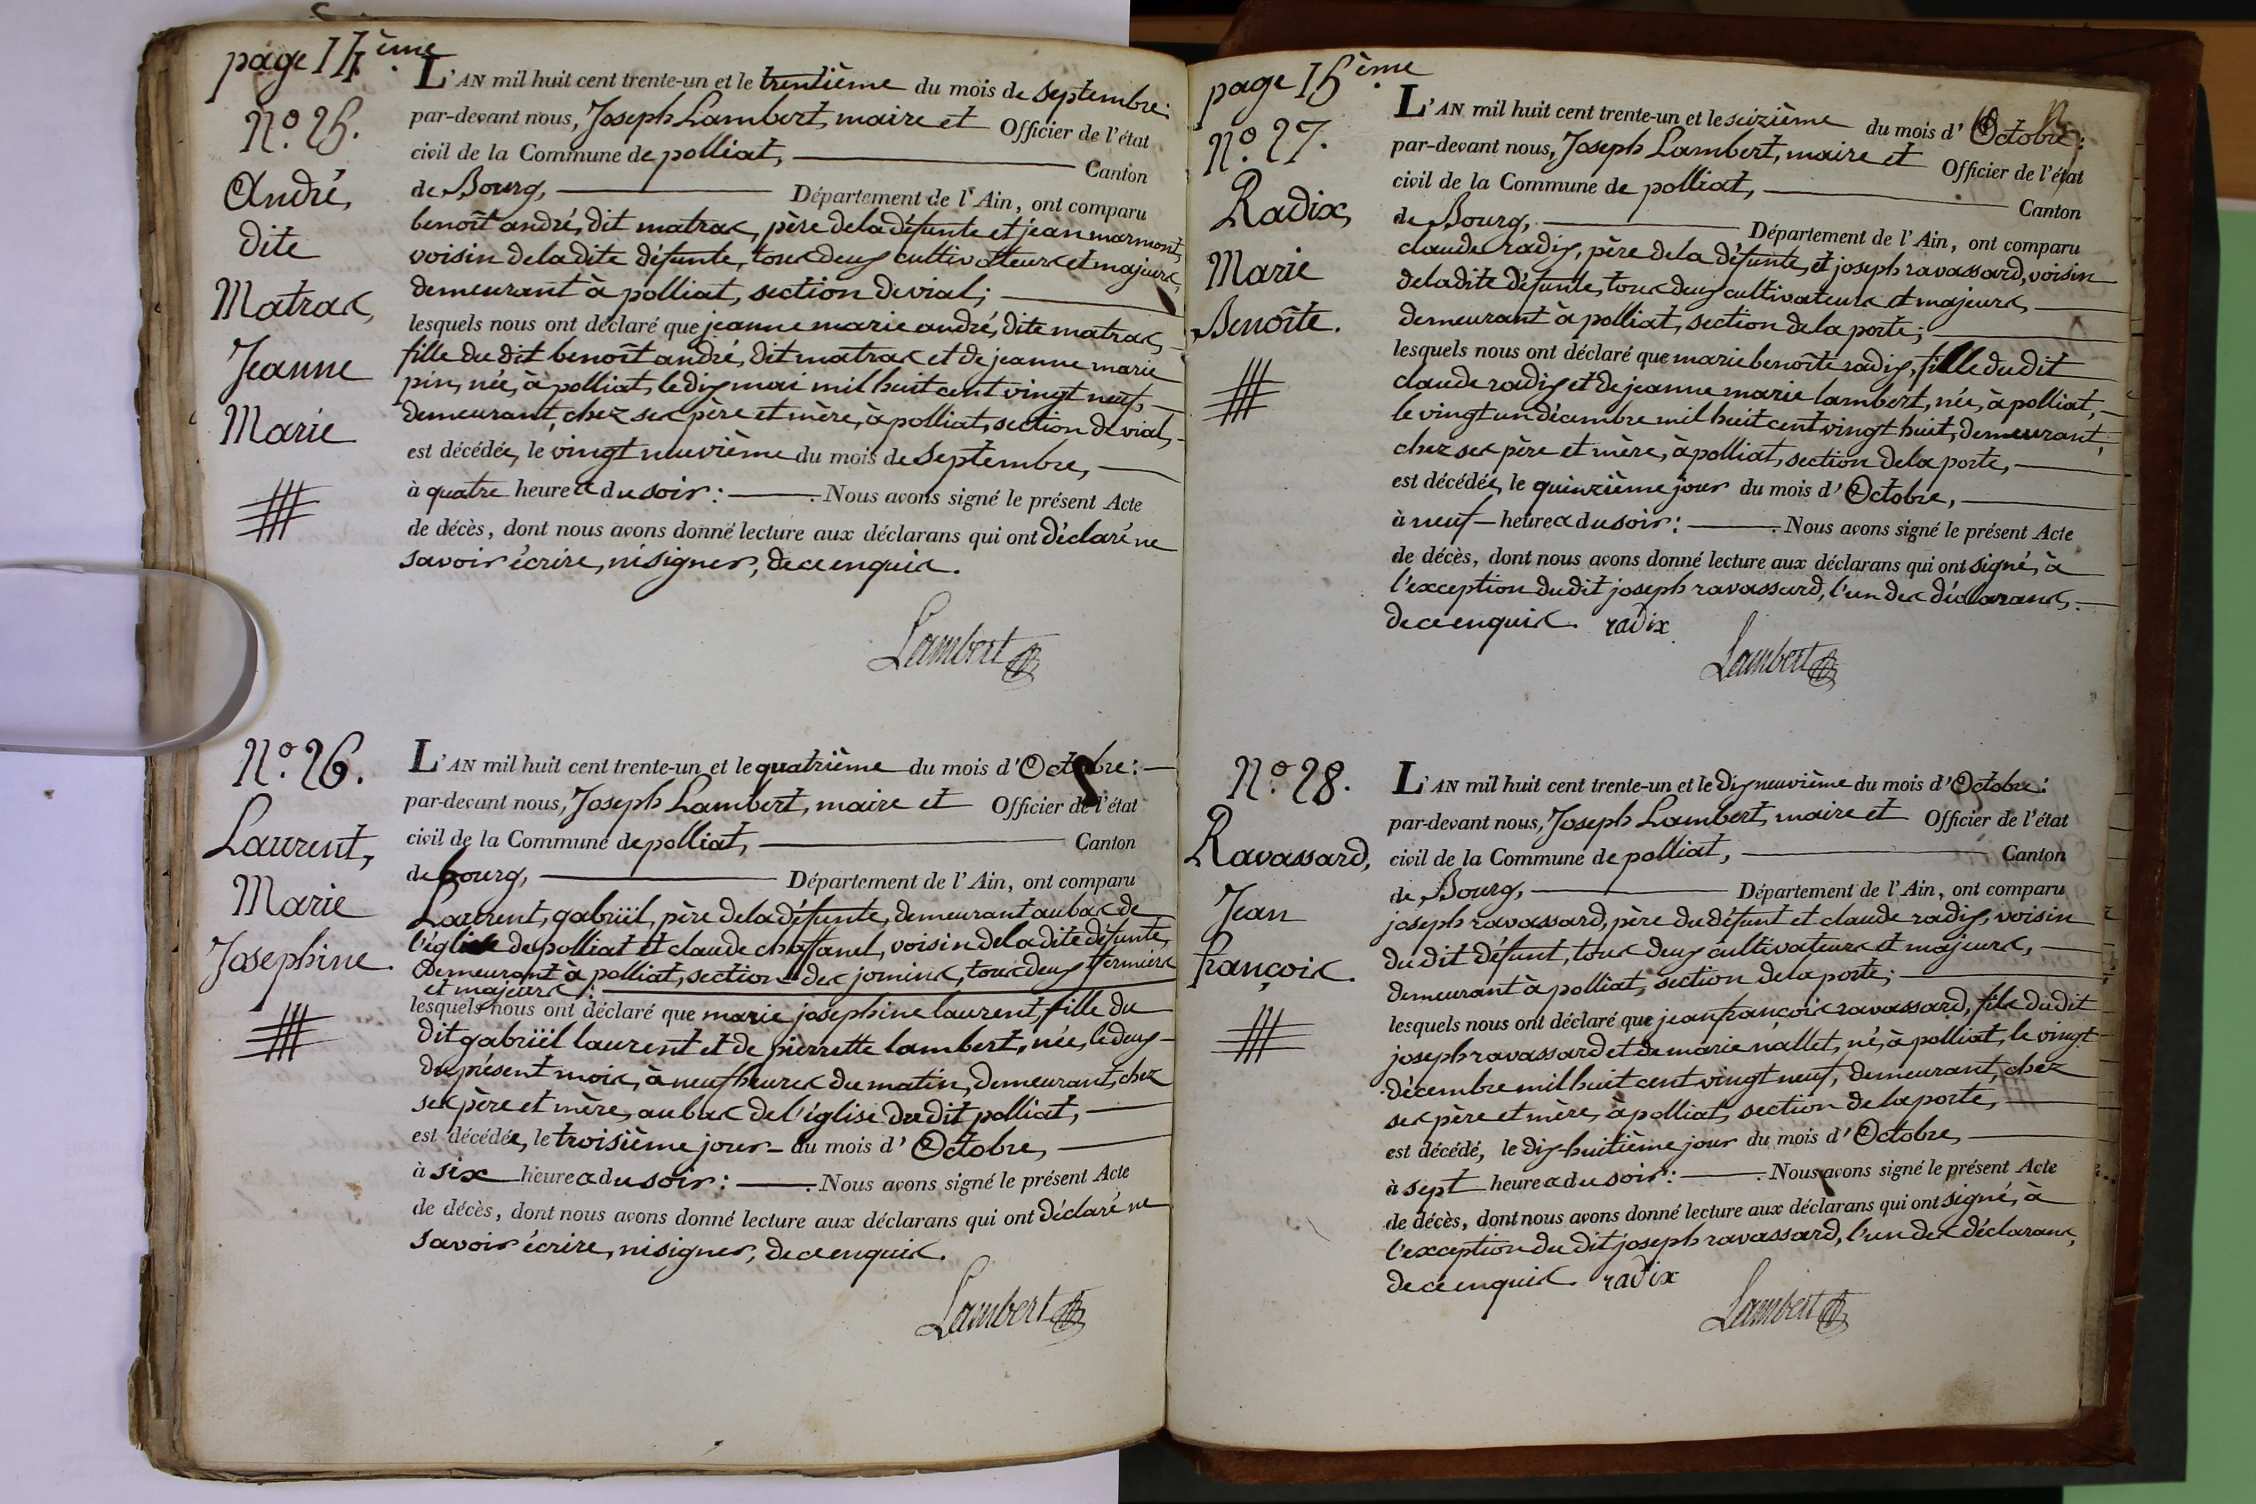 page 14ème.
N.o 25.
André,
dite
Matras,
Jeanne
Marie
L'AN mil huit cent trente-un et le trentième du mois de septembre:
par-devant nous, Joseph Lambert, maire et Officier de l'état
civil de la Commune de polliat, Canton
de Bourg, Département de l'Ain, ont comparu
benoît andré, dit matras, père de la défunte et jean marmont,
voisin de la dite défunte, tous deux cultivateurs et majeurs,
demeurant à polliat, section de vial;
lesquels nous ont déclaré que jeanne marie andré, dite matras,
fille du dit benoît andré, dit matras et de jeanne marie
pin, née, à polliat, le dix mai mil huit cent vingt neuf,
demeurant, chez ses père et mère, à polliat, section de vial,
est décédée, le vingt neuvième du mois de septembre,
à quatre heures du soir: Nous avons signé le présent Acte
de décès, dont nous avons donné lecture aux déclarans qui ont déclaré ne
savoir écrire, ni signer, de ce enquis.
Lambert
N.o 26.
Laurent,
Marie
Josephine.
L'AN mil huit cent trente-un et le quatrième du mois d'Octobre:
par-devant nous, Joseph Lambert, maire et Officier de l'état
civil de la Commune de polliat, Canton
de bourg, Département de l'Ain, ont comparu
Laurent, gabriël, père de la défunte, demeurant au bas de
l'église de polliat et claude chaffanel, voisin de la dite défunte,
demeurant à polliat, section des jomins, tous deux fermiers
et majeurs;
lesquels nous ont déclaré que marie josephine laurent, fille du
dit gabriël laurent et de pierrette lambert, née, le deux
du présent mois, à neuf heures du matin, demeurant, chez
ses père et mère, au bas de l'église du dit polliat,
est décédée, le troisième jour du mois d'Octobre,
à six heures du soir: Nous avons signé le présent Acte
de décès, dont nous avons donné lecture aux déclarans qui ont déclaré ne
savoir écrire, ni signer, de ce enquis.
Lambert
page 15ème.
N.o 27.
Radix,
Marie
Benoîte.
L'AN mil huit cent trente-un et le seizième du mois d'Octobre:
par-devant nous, Joseph Lambert, maire et Officier de l'état
civil de la Commune de polliat, Canton
de Bourg, Département de l'Ain, ont comparu
claude radix, père de la défunte, et joseph ravassard, voisin
de la dite défunte, tous deux cultivateurs et majeurs,
demeurant à polliat, section de la porte;
lesquels nous ont déclaré que marie benoîte radix, fille du dit
claude radix et de jeanne marie lambert, née, à polliat,
le vingt un décembre mil huit cent vingt huit, demeurant,
chez ses père et mère, à polliat, section de la porte,
est décédée, le quinzième jour du mois d'Octobre,
à neuf heures du soir: Nous avons signé le présent Acte
de décès, dont nous avons donné lecture aux déclarans qui ont signé, à
l'exception du dit joseph ravassard, l'un des déclarans,
de ce enquis. radix
Lambert
N.o 28.
Ravassard,
Jean
françois.
L'AN mil huit cent trente-un et le dix neuvième du mois d'Octobre:
par-devant nous, Joseph Lambert, maire et Officier de l'état
civil de la Commune de polliat, Canton
de Bourg, Département de l'Ain, ont comparu
joseph ravassard, père du défunt et claude radix, voisin
du dit défunt, tous deux cultivateurs et majeurs,
demeurant à polliat, section de la porte;
lesquels nous ont déclaré que jean françois ravassard, fils du dit
joseph ravassard et de marie nallet, né, à polliat, le vingt
décembre mil huit cent vingt neuf, demeurant, chez
ses père et mère, à polliat, section de la porte,
est décédé, le dix-huitième jour du mois d'Octobre,
à sept heures du soir: Nous avons signé le présent Acte
de décès, dont nous avons donné lecture aux déclarans qui ont signé, à
l'exception du dit joseph ravassard, l'un des déclarans,
de ce enquis. radix
Lambert